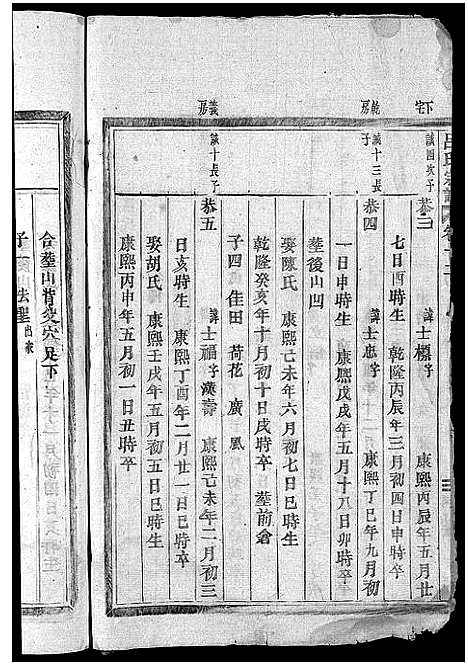 下宅
諒四次子
恭三 諱士標字 康熙丙辰年五月廿
七日酉時生 乾隆丙辰年三月初四日申時卒
乾房
諒十三長子
恭四 諱士忠字 康熙丁巳年九月初
一日申時生 康熙戊戌年五月十八日卯時卒
塟後山凹
娶陳氏 康熙己未年六月初七日巳時生
乾隆癸亥年十月初十日戌時卒 塟前倉
子四 佳田 荷花 廣 風
義房
諒十長子
恭五 諱士福字漢壽 康熙己未年二月初三
日亥時生 康熙丁酉年二月廿一日時卒
娶胡氏 康熙壬戌年五月初五日巳時生
康熙丙申年五月初一日丑時卒
合塟山背
足下
子一 法聖 出家
呂氏宗譜